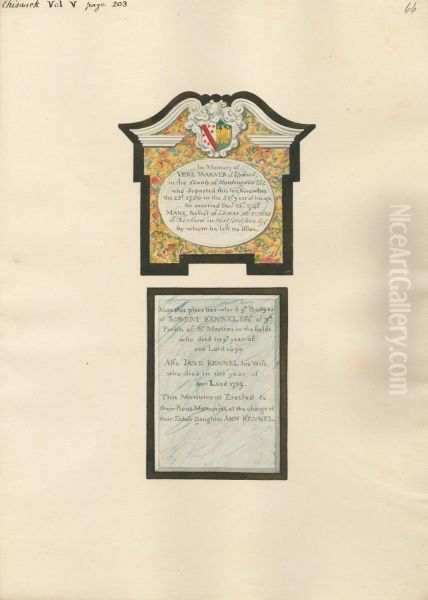 Chiswick Vol V page 203
66
In Memory of
VERE WARNER of
in the County of Huntington Esq
who departed this life November
the 23d 1756 in the 5 year of his age
he married Decr 23d 174
MARY, Relict of
of Northaw in Hertfordshire Esqr
by whom he left no Issue.
Near this place lies inter'd ye Bodyes
of ROBERT KENNEL Esqr of ye
Parish of St Martins in the fields
who died in ye year of
our Lord 1696
Also JANE KENNEL his Wife
who died in the year of
our Lord 1719.
This Monument Erected to
their Pious Memories at the charge of
their Eldest Daughter ANN KENNEL
NiceArtGallery.com